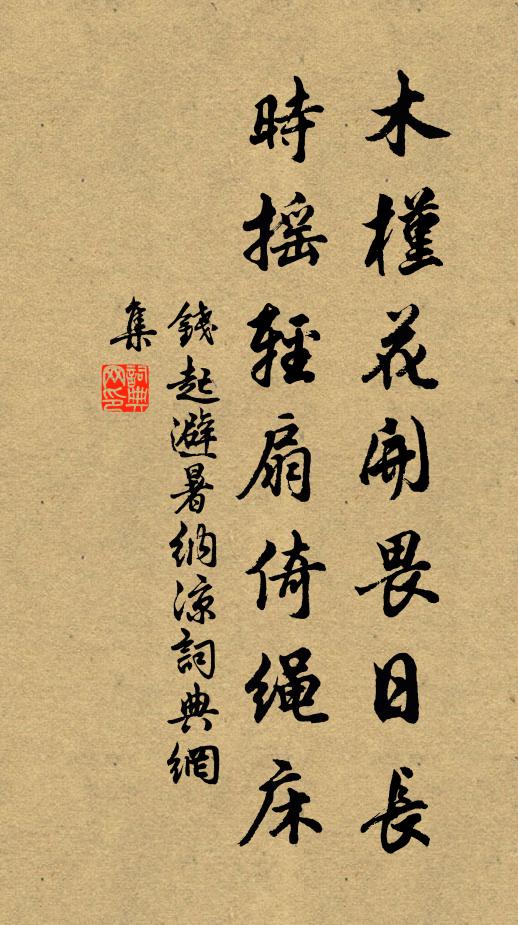 木槿花開畏日長
時摇輕扇倚繩床
錢起避暑納涼詞典網
集
詞典網印